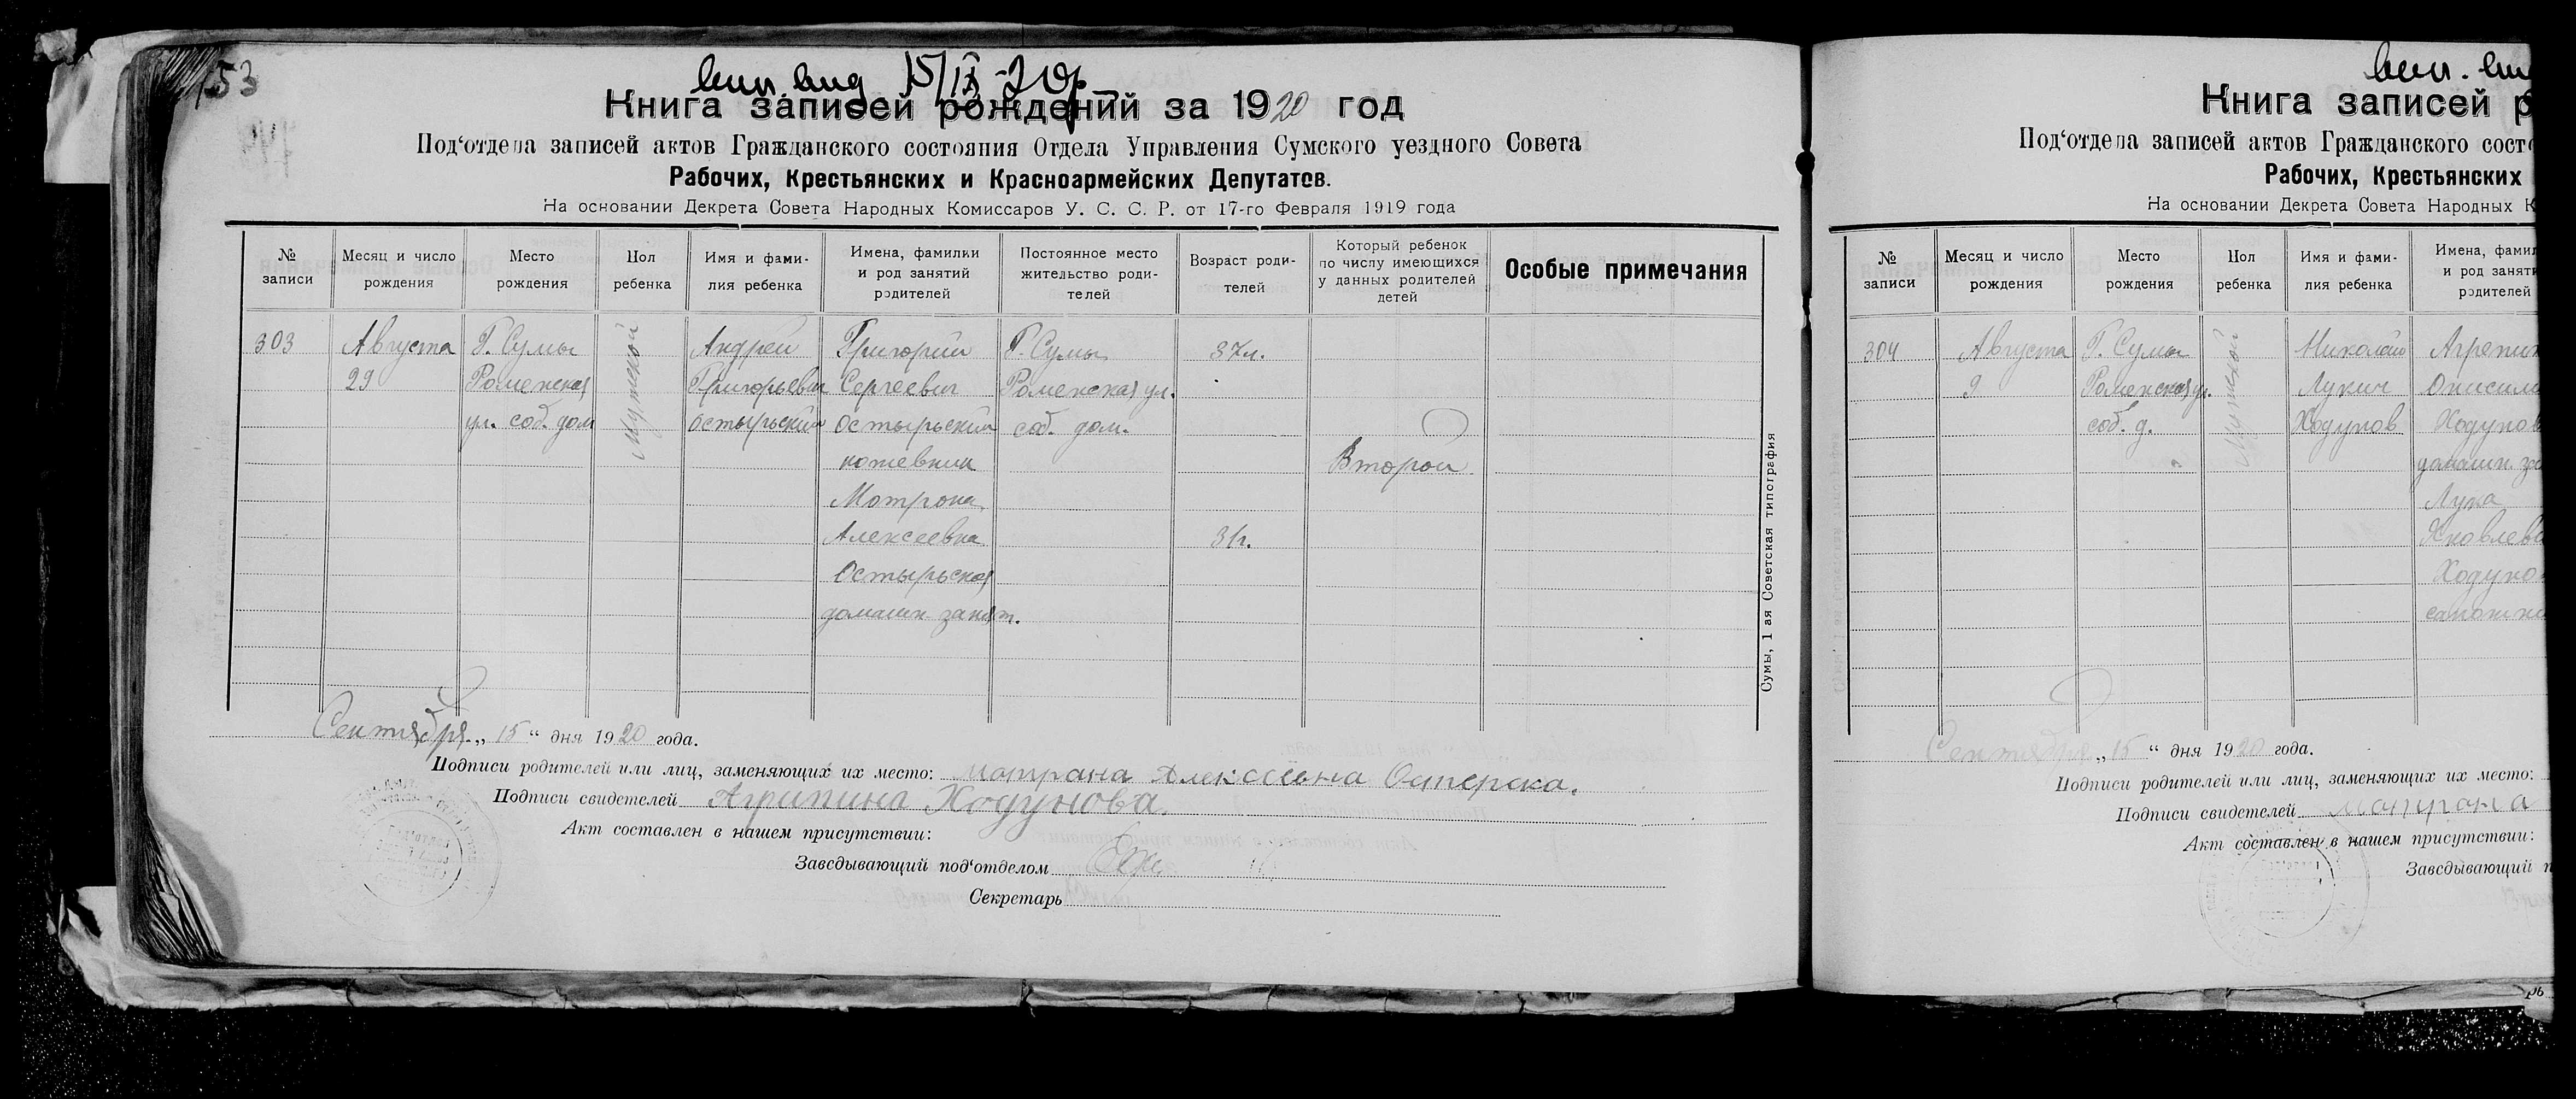 53
вып. вид 15/IX-20г.
Книга записей рождений за 1920 год
Под'отдела записей актов Гражданского состояния Отдела Управления Сумского уездного Совета
Рабочих, Крестьянских и Красноармейских Депутатов.
На основании Декрета Совета Народных Комиссаров У. С. С. Р. от 17-го Февраля 1919 года
№ записи
Месяц и число рождения
Место рождения
Пол ребенка
Имя и фами- лия ребенка
Имена, фамилии и род занятий родителей
Постоянное место жительство роди- телей
Возраст роди- телей
Который ребенок по числу имеющихся у данных родителей детей
Особые примечания
303
Августа
29
Г. Сумы
Роменская
ул. соб. дом
Мужской
Андрей
Григорьевич
Остырьский
Григорий
Сергеевич
Остырьский
кожевник
Мотрона
Алексеевна
Остырьская
домашн. занят.
Г. Сумы
Роменская ул.
соб. дом.
37л.
31г.
Второй
Сумы, 1 ая Советская типография
Сентября „15“ дня 1920 года.
Подписи родителей или лиц, заменяющих их место: Матрана Алексеевна Остерска.
Подписи свидетелей Агрипина Ходунова.
Акт составлен в нашем присутствии:
Заведывающий под'отделом
Секретарь
вып. вид
Книга записей р
Под'отдела записей актов Гражданского состо
Рабочих, Крестьянских
На основании Декрета Совета Народных К
№ записи
Месяц и число рождения
Место рождения
Пол ребенка
Имя и фами- лия ребенка
Имена, фамил
и род заняти
родителей
304
Августа
9
Г. Сумы
Роменская ул.
соб. д.
Мужской
Николай
Лукич
Ходунов
Агрепин
Онисимо
Ходунов
домашн. за
Лука
Яковлеви
Ходуно
сапожни
Сентября „15“ дня 1920 года.
Подписи родителей или лиц, заменяющих их место:
Подписи свидетелей Матрана
Акт составлен в нашем присутствии:
Заведывающий п